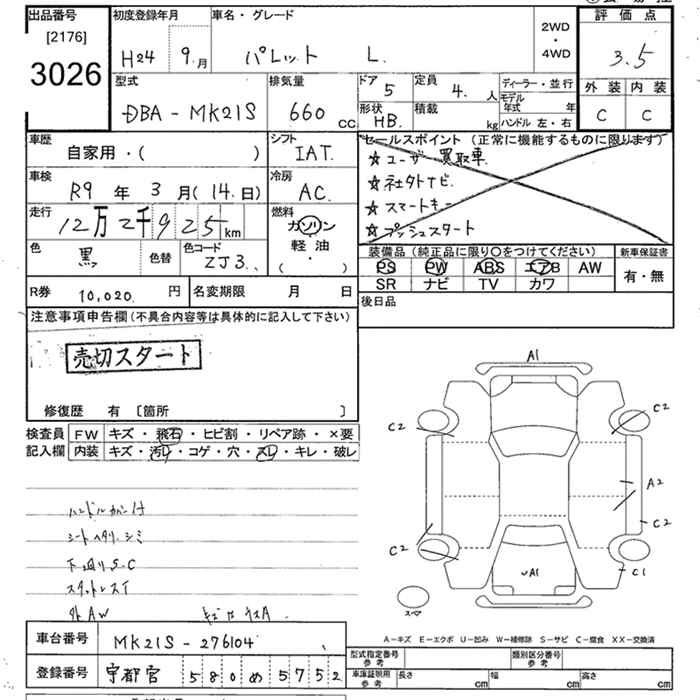 出品番号
[2176]
3026
初度登録年月
H24 9月
車名・グレード
パレット L.
2WD
・
4WD
評価点
3.5
型式
DBA - MK21S
排気量
660 cc
ドア 5
定員 4. 人
形状 HB.
積載 kg
ディーラー・並行
モデル年式 年
ハンドル 左・右
外装 内装
C C
車歴
自家用・( )
シフト
IAT.
セールスポイント (正常に機能するものに限ります)
☆ユーザー買取車.
☆社外ナビ.
☆スマートキー
☆プッシュスタート
車検
R9 年 3 月(14.日)
冷房
AC.
走行
12万2千925km
燃料
ガソリン
軽油
・
( )
色
黒
色替
色コード
ZJ3.
装備品 (純正品に限り○をつけてください)
PS PW ABS エアB AW
SR ナビ TV カワ
新車保証書
有・無
R券 10,020. 円
名変期限 月 日
後日品
注意事項申告欄(不具合内容等は具体的に記入して下さい)
売切スタート
修復歴 有 [箇所 ]
検査員 FW キズ・飛石・ヒビ割・リペア跡・×要
記入欄 内装 キズ・汚レ・コゲ・穴・スレ・キレ・破レ
シートヘタリ.シミ
下廻りS.C
外AW
A1
C2
C2
A2
C2
C2
C1
A1
スペア
A-キズ E-エクボ U-凹み W-補修跡 S-サビ C-腐食 XX-交換済
車台番号 MK21S-276104
登録番号 宇都宮 580め5752
型式指定番号
参考
類別区分番号
参考
車庫証明用
参考
長さ cm 幅 cm 高さ cm